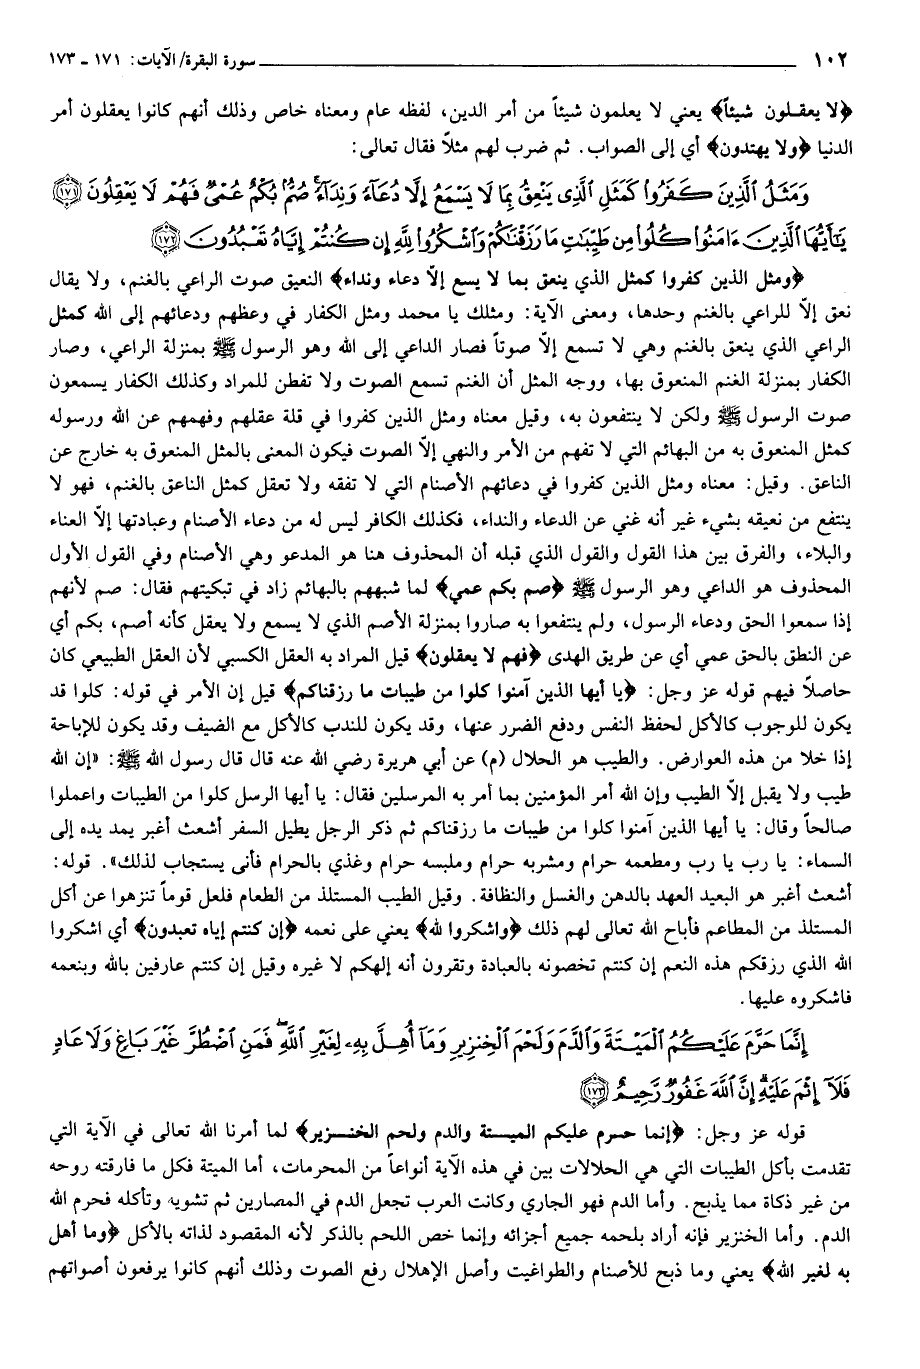 ١٠٢ سورة البقرة/ الآيات: ١٧١ ـ ١٧٣
﴿لا يعقـلون شيئاً﴾ يعني لا يعلمون شيئاً من أمر الدين، لفظه عام ومعناه خاص وذلك أنهم كانوا يعقلون أمر
الدنيا ﴿ولا يهتدون﴾ أي إلى الصواب. ثم ضرب لهم مثلاً فقال تعالى:
وَمَثَلُ ٱلَّذِينَ كَفَرُوا۟ كَمَثَلِ ٱلَّذِى يَنْعِقُ بِمَا لَا يَسْمَعُ إِلَّا دُعَآءً وَنِدَآءً ۚ صُمٌّۢ بُكْمٌ عُمْىٌ فَهُمْ لَا يَعْقِلُونَ ﴿١٧١﴾
يَـٰٓأَيُّهَا ٱلَّذِينَ ءَامَنُوا۟ كُلُوا۟ مِن طَيِّبَـٰتِ مَا رَزَقْنَـٰكُمْ وَٱشْكُرُوا۟ لِلَّهِ إِن كُنتُمْ إِيَّاهُ تَعْبُدُونَ ﴿١٧٢﴾
﴿ومثل الذين كفروا كمثل الذي ينعق بما لا يسع إلاّ دعاء ونداء﴾ النعيق صوت الراعي بالغنم، ولا يقال
نعق إلاّ للراعي بالغنم وحدها، ومعنى الآية: ومثلك يا محمد ومثل الكفار في وعظهم ودعائهم إلى الله كمثل
الراعي الذي ينعق بالغنم وهي لا تسمع إلاّ صوتاً فصار الداعي إلى الله وهو الرسول ﷺ بمنزلة الراعي، وصار
الكفار بمنزلة الغنم المنعوق بها، ووجه المثل أن الغنم تسمع الصوت ولا تفطن للمراد وكذلك الكفار يسمعون
صوت الرسول ﷺ ولكن لا ينتفعون به، وقيل معناه ومثل الذين كفروا في قلة عقلهم وفهمهم عن الله ورسوله
كمثل المنعوق به من البهائم التي لا تفهم من الأمر والنهي إلاّ الصوت فيكون المعنى بالمثل المنعوق به خارج عن
الناعق. وقيل: معناه ومثل الذين كفروا في دعائهم الأصنام التي لا تفقه ولا تعقل كمثل الناعق بالغنم، فهو لا
ينتفع من نعيقه بشيء غير أنه غني عن الدعاء والنداء، فكذلك الكافر ليس له من دعاء الأصنام وعبادتها إلاّ العناء
والبلاء، والفرق بين هذا القول والقول الذي قبله أن المحذوف هنا هو المدعو وهي الأصنام وفي القول الأول
المحذوف هو الداعي وهو الرسول ﷺ ﴿صم بكم عمي﴾ لما شبههم بالبهائم زاد في تبكيتهم فقال: صم لأنهم
إذا سمعوا الحق ودعاء الرسول، ولم ينتفعوا به صاروا بمنزلة الأصم الذي لا يسمع ولا يعقل كأنه أصم، بكم أي
عن النطق بالحق عمي أي عن طريق الهدى ﴿فهم لا يعقلون﴾ قيل المراد به العقل الكسبي لأن العقل الطبيعي كان
حاصلاً فيهم قوله عز وجل: ﴿يا أيها الذين آمنوا كلوا من طيبات ما رزقناكم﴾ قيل إن الأمر في قوله: كلوا قد
يكون للوجوب كالأكل لحفظ النفس ودفع الضرر عنها، وقد يكون للندب كالأكل مع الضيف وقد يكون للإباحة
إذا خلا من هذه العوارض. والطيب هو الحلال (م) عن أبي هريرة رضي الله عنه قال قال رسول الله ﷺ: «إن الله
طيب ولا يقبل إلاّ الطيب وإن الله أمر المؤمنين بما أمر به المرسلين فقال: يا أيها الرسل كلوا من الطيبات واعملوا
صالحاً وقال: يا أيها الذين آمنوا كلوا من طيبات ما رزقناكم ثم ذكر الرجل يطيل السفر أشعث أغبر يمد يده إلى
السماء: يا رب يا رب ومطعمه حرام ومشربه حرام وملبسه حرام وغذي بالحرام فأنى يستجاب لذلك». قوله:
أشعث أغبر هو البعيد العهد بالدهن والغسل والنظافة. وقيل الطيب المستلذ من الطعام فلعل قوماً تنزهوا عن أكل
المستلذ من المطاعم فأباح الله تعالى لهم ذلك ﴿واشكروا لله﴾ يعني على نعمه ﴿إن كنتم إياه تعبدون﴾ أي اشكروا
الله الذي رزقكم هذه النعم إن كنتم تخصونه بالعبادة وتقرون أنه إلهكم لا غيره وقيل إن كنتم عارفين بالله وبنعمه
فاشكروه عليها.
إِنَّمَا حَرَّمَ عَلَيْكُمُ ٱلْمَيْتَةَ وَٱلدَّمَ وَلَحْمَ ٱلْخِنزِيرِ وَمَآ أُهِلَّ بِهِۦ لِغَيْرِ ٱللَّهِ ۖ فَمَنِ ٱضْطُرَّ غَيْرَ بَاغٍ وَلَا عَادٍ
فَلَآ إِثْمَ عَلَيْهِ ۚ إِنَّ ٱللَّهَ غَفُورٌ رَّحِيمٌ ﴿١٧٣﴾
قوله عز وجل: ﴿إنما حـرم عليكم الميـتة والدم ولحم الخنـزير﴾ لما أمرنا الله تعالى في الآية التي
تقدمت بأكل الطيبات التي هي الحلالات بين في هذه الآية أنواعاً من المحرمات، أما الميتة فكل ما فارقته روحه
من غير ذكاة مما يذبح. وأما الدم فهو الجاري وكانت العرب تجعل الدم في المصارين ثم تشويه وتأكله فحرم الله
الدم. وأما الخنزير فإنه أراد بلحمه جميع أجزائه وإنما خص اللحم بالذكر لأنه المقصود لذاته بالأكل ﴿وما أهل
به لغير الله﴾ يعني وما ذبح للأصنام والطواغيت وأصل الإهلال رفع الصوت وذلك أنهم كانوا يرفعون أصواتهم